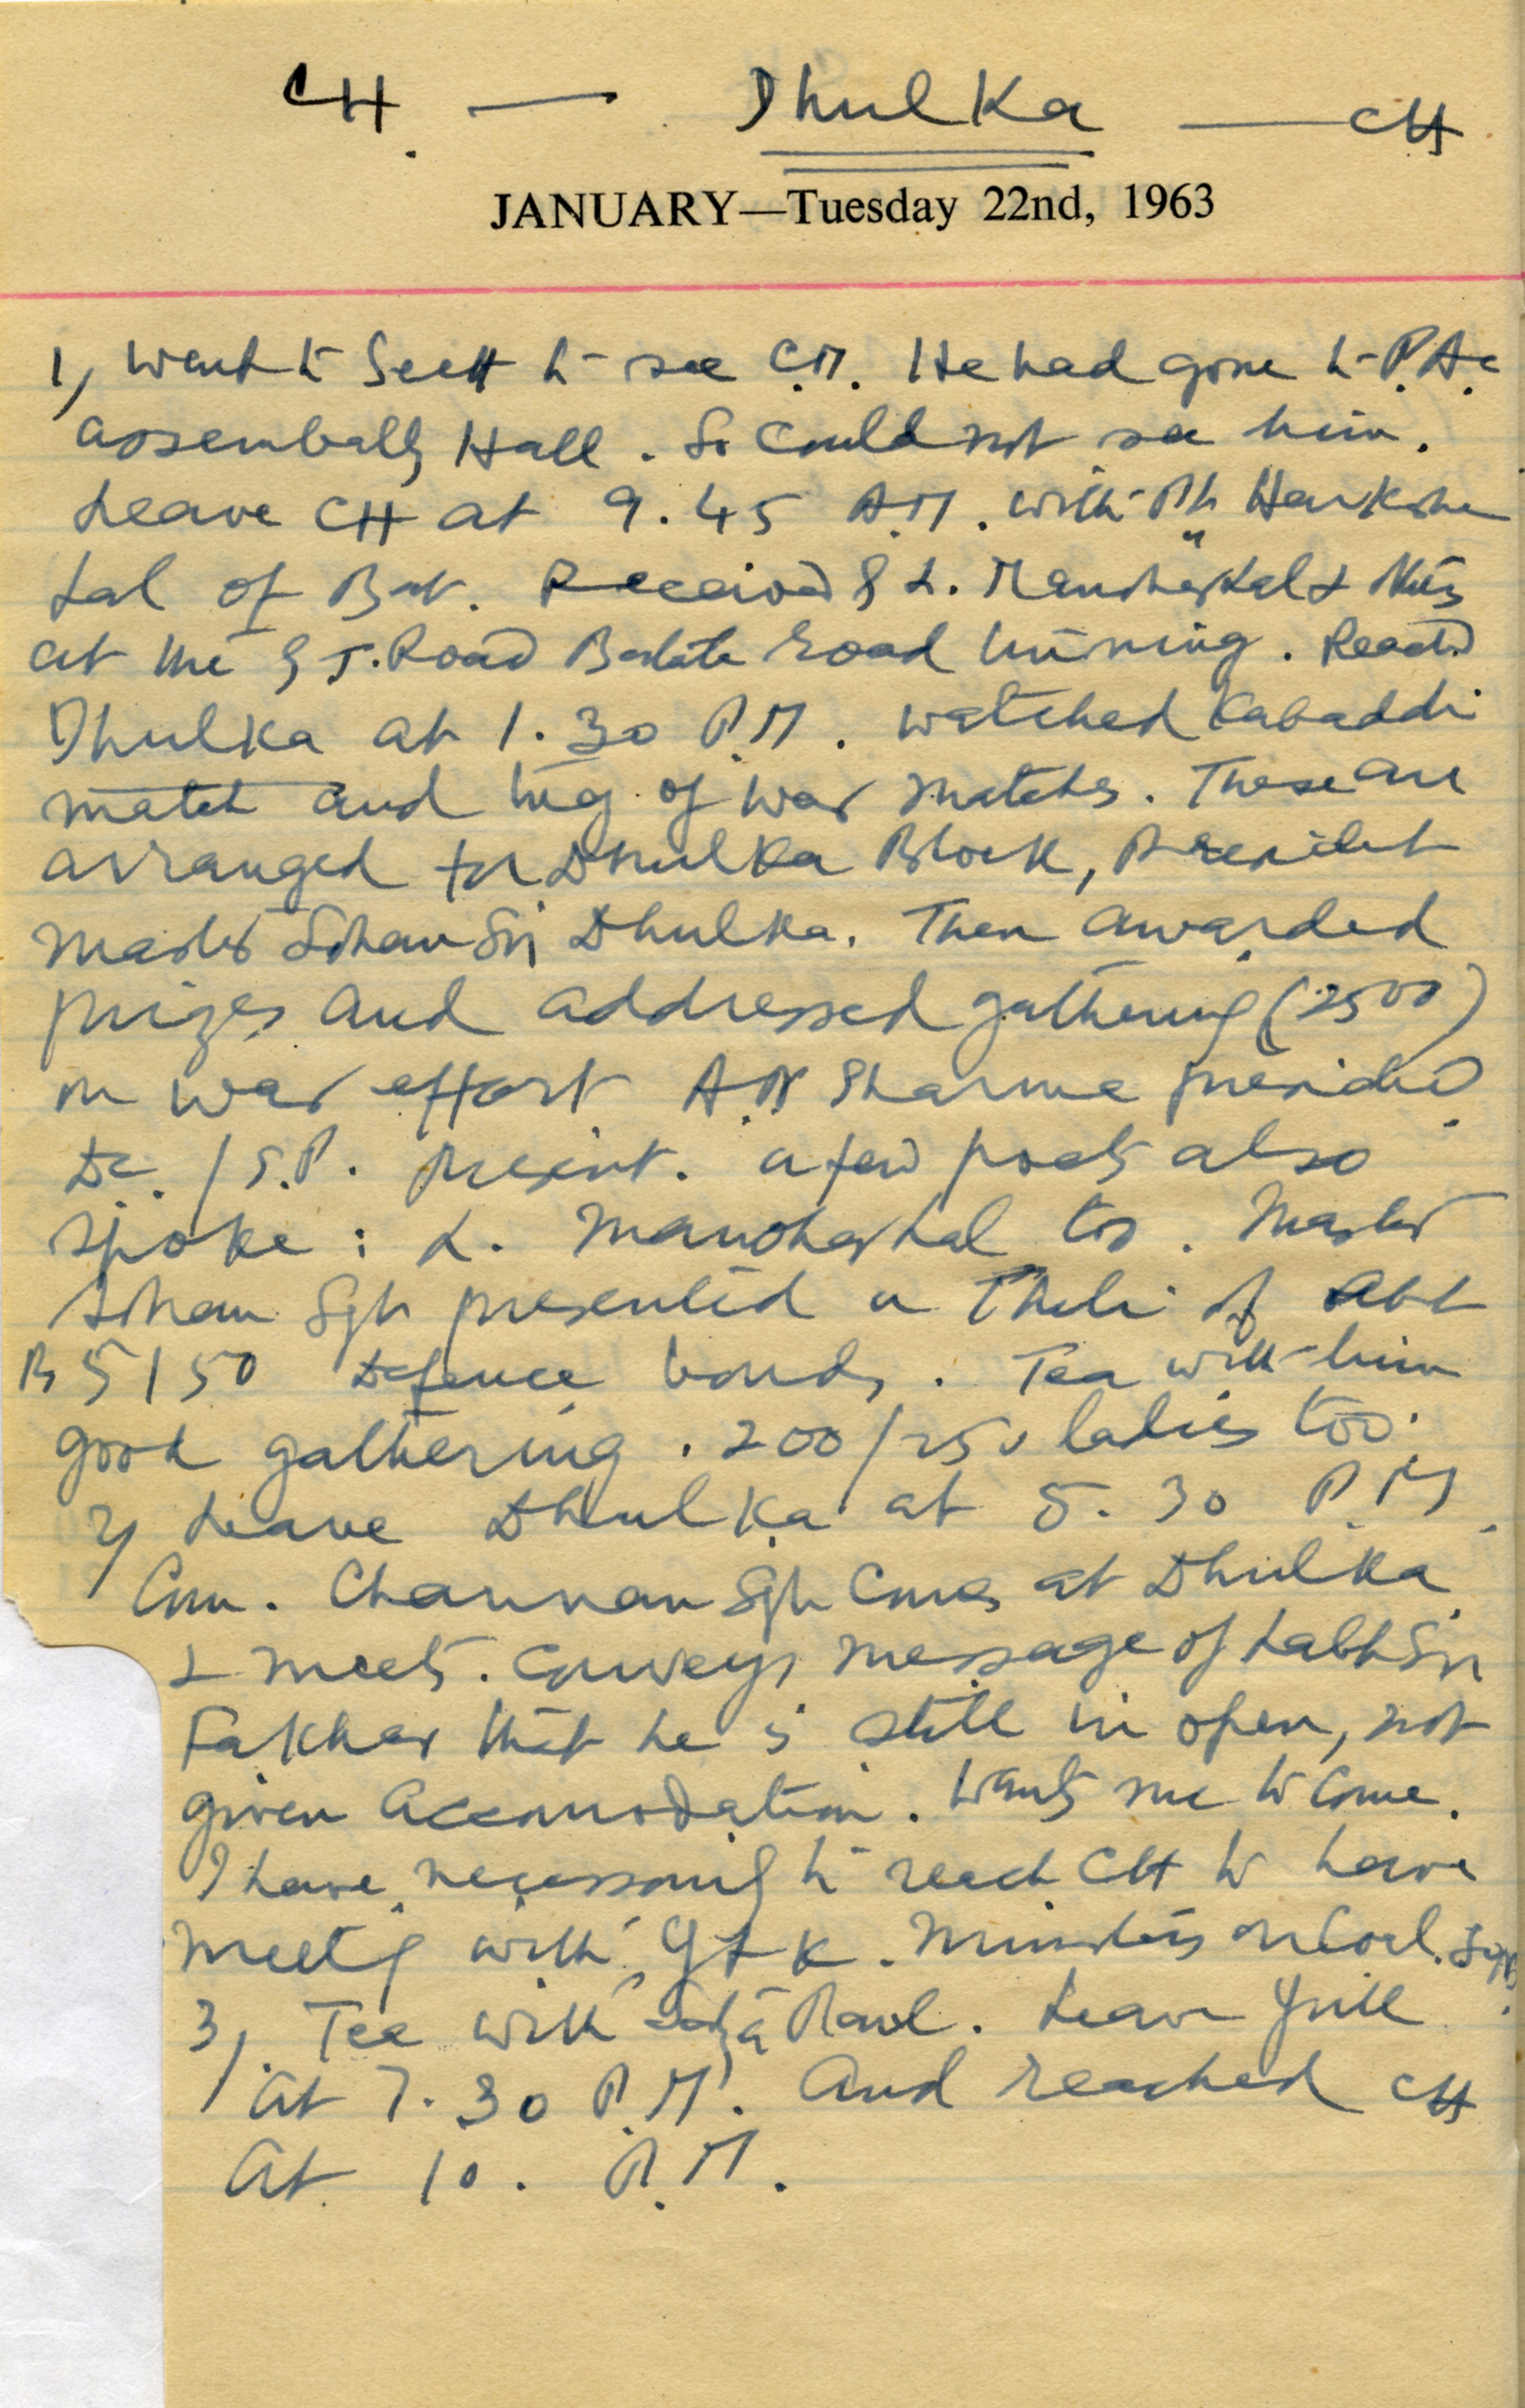 CH — Dhulka — CH
JANUARY—Tuesday 22nd, 1963
1, Went to Sectt to see C.M. He had gone to P.A.C
assembally Hall. So Could not see him.
Leave CH at 9.45 A.M. with Harkishen
Lal of Bat. Received L. Manohar Lal &
at the G.T. Road Batala road turning. Reached
Dhulka at 1.30 P.M. watched Kabaddi
match and tug of war matches. These are
arranged for Dhulka Block, President
Master Sohan Sin Dhulka. Then awarded
prizes and addressed gathering (2500)
on war effort A.N Sharma presided
DC. / S.P. present. a few poets also
spoke : L. Manohar Lal too. Master
Sohan Sgh presented a Theli of abt
Rs 5150 Defence bonds. Tea with him
good gathering. 200/250 ladies too.
2/ Leave Dhulka at 5.30 P.M.
Com. Channan Sgh Comes at Dhulka
& meets. Conveys message of Labh Sin
Fakhar that he is still in open, not
given accomodation. Wants me to Come.
I have necessarily to reach CH to have
meetig with J & K. Ministers on Coal.
3/. Tea with Paul. Leave
at 7.30 P.M. and reached CH
at 10. P.M.